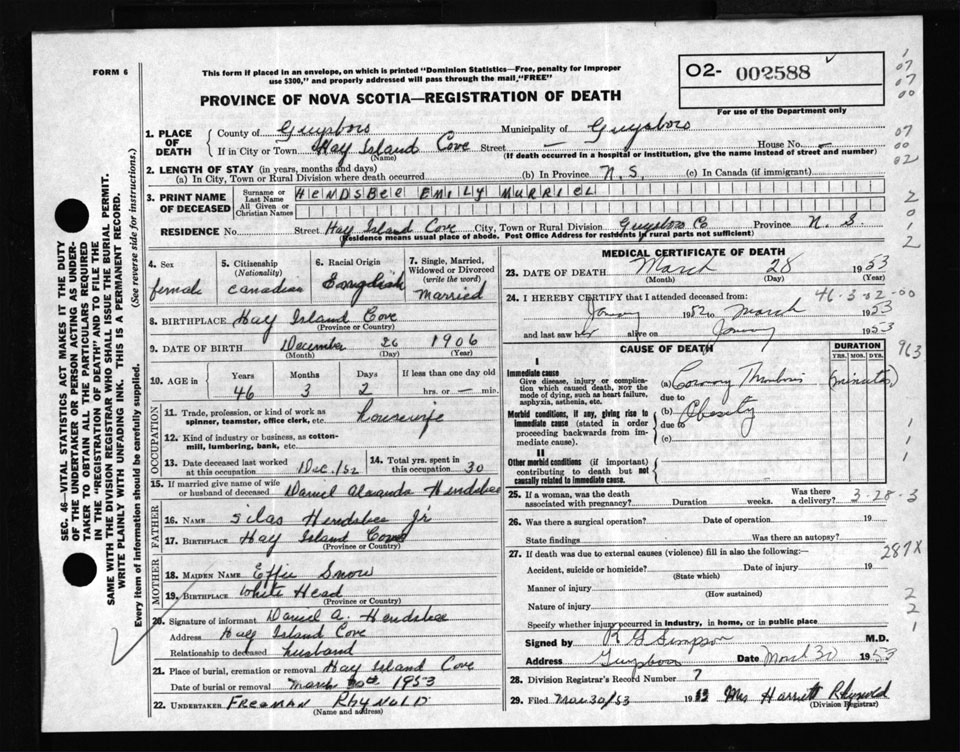 FORM 6
This form if placed in an envelope, on which is printed "Dominion Statistics—Free, penalty for improper
use $300," and properly addressed will pass through the mail,"FREE"
O2- 002588
PROVINCE OF NOVA SCOTIA—REGISTRATION OF DEATH
For use of the Department only
1. PLACE OF DEATH
County of Guysboro Municipality of Guysboro
If in City or Town Hay Island Cove Street — House No. —
(Name) (If death occurred in a hospital or institution, give the name instead of street and number)
2. LENGTH OF STAY (in years, months and days)
(a) In City, Town or Rural Division where death occurred (b) In Province N.S. (c) In Canada (if immigrant)
3. PRINT NAME OF DECEASED
Surname or Last Name HENDSBEE EMILY MURRIEL
All Given or Christian Names
RESIDENCE No. Street Hay Island Cove City, Town or Rural Division Guysboro Co Province N. S.
(Residence means usual place of abode. Post Office Address for residents in rural parts not sufficient)
4. Sex
female
5. Citizenship (Nationality)
Canadian
6. Racial Origin
English
7. Single, Married, Widowed or Divorced (write the word)
Married
8. BIRTHPLACE Hay Island Cove
(Province or Country)
9. DATE OF BIRTH December 26 1906
(Month) (Day) (Year)
10. AGE in Years Months Days If less than one day old
46 3 2 hrs. or — min.
OCCUPATION
11. Trade, profession, or kind of work as
spinner, teamster, office clerk, etc. housewife
12. Kind of industry or business, as cotton-
mill, lumbering, bank, etc.
13. Date deceased last worked at this occupation Dec. 1 52
14. Total yrs. spent in this occupation 30
15. If married give name of wife
or husband of deceased Daniel Hendsbee
FATHER
16. NAME Silas Hendsbee Jr
17. BIRTHPLACE Hay Island Cove
(Province or Country)
MOTHER
18. MAIDEN NAME Effie Snow
19. BIRTHPLACE White Head
(Province or Country)
20. Signature of informant Daniel A. Hendsbee
Address Hay Island Cove
Relationship to deceased husband
21. Place of burial, cremation or removal Hay Island Cove
Date of burial or removal March 30th 1953
22. UNDERTAKER FREEMAN RHYNOLD
(Name and address)
MEDICAL CERTIFICATE OF DEATH
23. DATE OF DEATH March 28 1953
(Month) (Day)
24. I HEREBY CERTIFY that I attended deceased from: 46-3-02-00
1952 to March 1953
and last saw her alive on 1953
CAUSE OF DEATH
DURATION
YRS. MOS. DYS.
I
Immediate cause
Give disease, injury or complica-
tion which caused death, NOT the
mode of dying, such as heart failure,
asphyxia, asthenia, etc.
(a) Thrombosis (minutes)
due to
Morbid conditions, if any, giving rise to
immediate cause (stated in order
proceeding backwards from im-
mediate cause).
(b) Obesity
due to
(c)
II
Other morbid conditions (if important)
contributing to death but not
causally related to immediate cause.
25. If a woman, was the death
associated with pregnancy? Duration weeks. Was there a delivery? 3-28-3
26. Was there a surgical operation? Date of operation 19
State findings Was there an autopsy?
27. If death was due to external causes (violence) fill in also the following:—
Accident, suicide or homicide? Date of injury 19
(State which)
Manner of injury
(How sustained)
Nature of injury
Specify whether injury occurred in industry, in home, or in public place
Signed by R G Simpson M.D.
Address Guysboro Date March 30 1953
28. Division Registrar's Record Number 7
29. Filed Mar 30/53 1953 Mrs Harriett Rhynold
(Division Registrar)
1
07
07
00
07
00
02
2
0
1
2
963
1
1
287X
2
2
1
SEC. 46—VITAL STATISTICS ACT MAKES IT THE DUTY
OF THE UNDERTAKER OR PERSON ACTING AS UNDER-
TAKER TO OBTAIN ALL THE PARTICULARS REQUIRED
IN THE "REGISTRATION OF DEATH" AND TO FILE THE
SAME WITH THE DIVISION REGISTRAR WHO SHALL ISSUE THE BURIAL PERMIT.
WRITE PLAINLY WITH UNFADING INK. THIS IS A PERMANENT RECORD.
Every item of information should be carefully supplied. (See reverse side for instructions.)